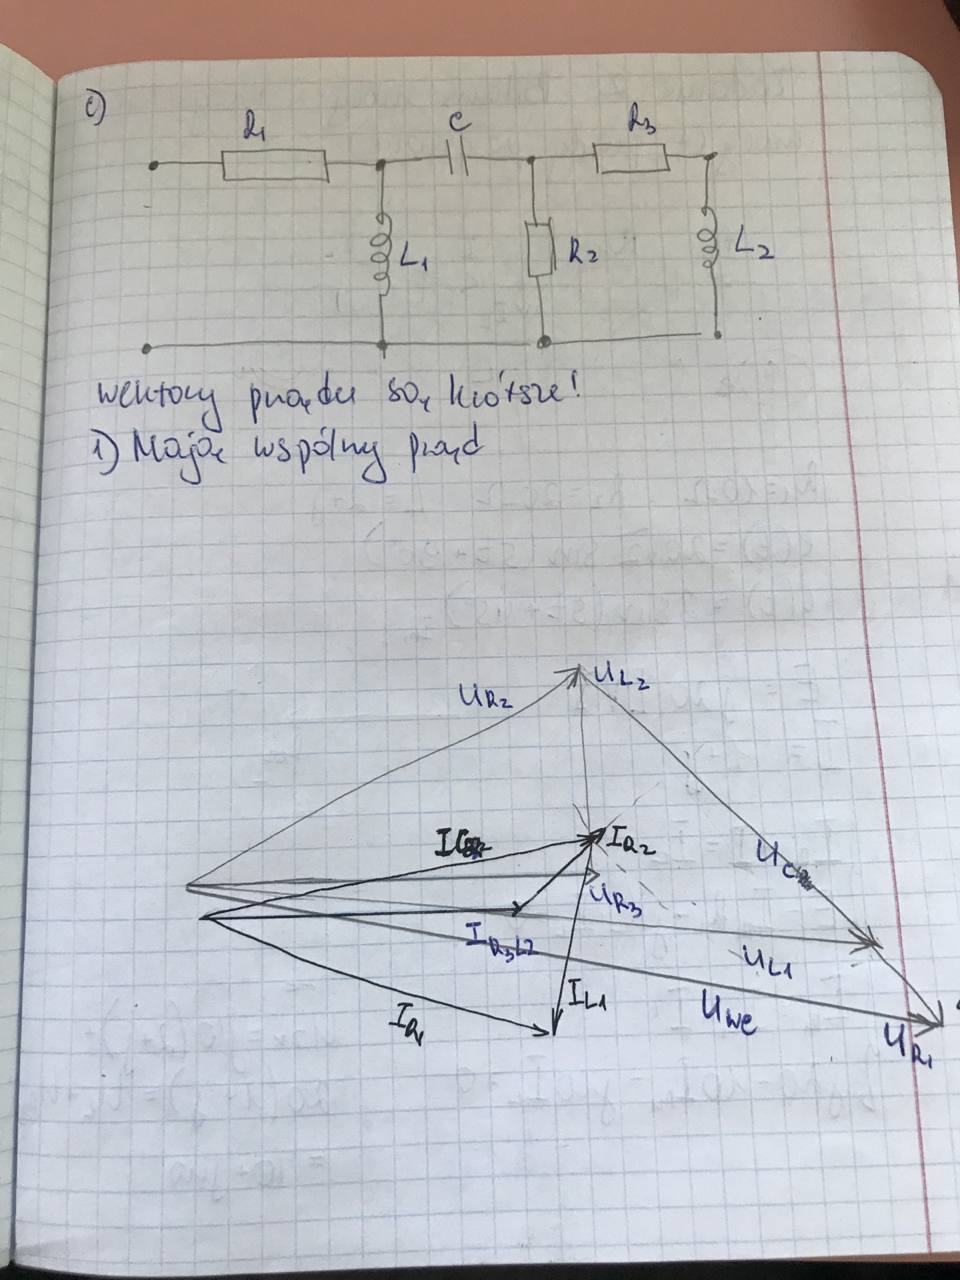 c)
R₁ C R₃
L₁ R₂ L₂
wektory prądu są krótsze!
1) Mają wspólny prąd
U_R₂ U_L₂
I_R₂ U_C
U_R₃
I_R₃L₂ U_L₁
I_L₁
I_R₁ U_we
U_R₁